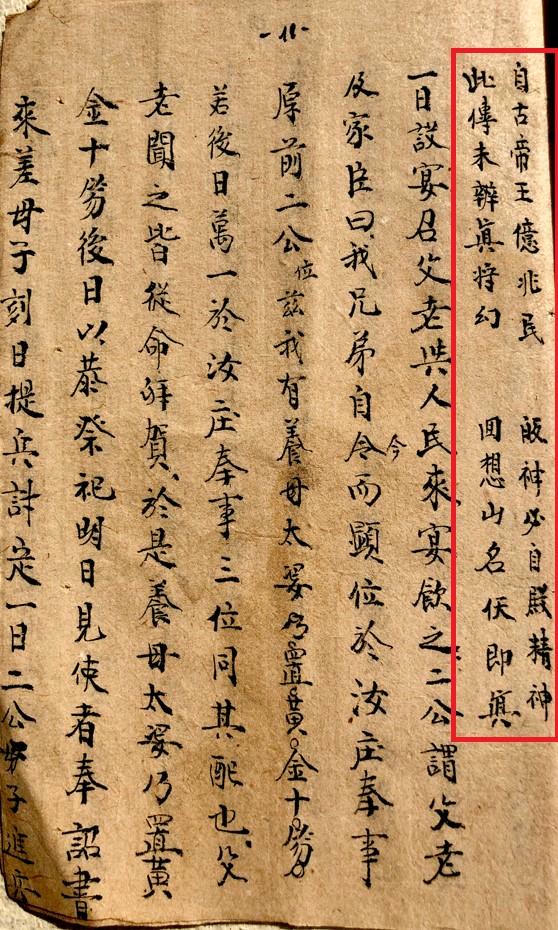 自古帝王億兆民 皈神必自賤精神
此傳未辨眞將幻 回想山名伏即眞
一日設宴召父老與人民來宴飲之二公謂父老
及家臣曰我兄弟自令今而顯位於汝庄奉事
厚前二公位茲我有養母太婆乃置黄金十勞
若後日萬一於汝庄奉事三位同其配也父
老聞之皆從命拜賀於是養母太婆乃置黄
金十勞後日以恭祭祀明日見使者奉詔書
來差母子刻日提兵討定一日二公母子進兵